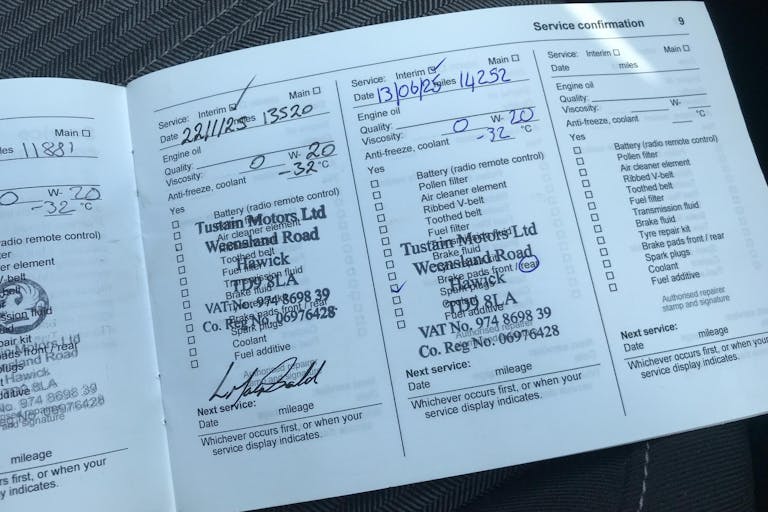 Main
les 11881
0 W- 20
-32 °C
adio remote control)
er element
-belt
belt
ssion fluid
id
air kit
ads front / rear
lugs
ditive
Weensland Road
Hawick
TD9 8LA
No. 974 8698 39
No. 06976428
and signature
mileage
rs first, or when your
y indicates.
Service confirmation 9
Service: Interim Main
Date 22/1/25 miles 13520
Engine oil
Quality:
Viscosity: 0 W- 20
Anti-freeze, coolant -32 °C
Yes
Battery (radio remote control)
Pollen filter
Air cleaner element
Toothed belt
Fuel filter
Transmission fluid
Brake fluid
Brake pads front / rear
Spark plugs
Coolant
Fuel additive
Tustain Motors Ltd
Weensland Road
Hawick
TD9 8LA
VAT No. 974 8698 39
Co. Reg No. 06976428
Authorised repairer
stamp and signature
Next service:
Date mileage
Whichever occurs first, or when your
service display indicates.
Service: Interim Main
Date 13/06/25 miles 14252
Engine oil
Quality:
Viscosity: 0 W- 20
Anti-freeze, coolant -32 °C
Yes
Battery (radio remote control)
Pollen filter
Air cleaner element
Ribbed V-belt
Toothed belt
Fuel filter
Transmission fluid
Brake fluid
Brake pads front / rear
Spark plugs
Tustain Motors Ltd
Weensland Road
Hawick
TD9 8LA
VAT No. 974 8698 39
Co. Reg No. 06976428
Authorised repairer
Next service:
Date mileage
Whichever occurs first, or when your
service display indicates.
Service: Interim Main
Date miles
Engine oil
Quality:
Viscosity: W-
Anti-freeze, coolant °C
Yes
Battery (radio remote control)
Pollen filter
Air cleaner element
Ribbed V-belt
Toothed belt
Fuel filter
Transmission fluid
Brake fluid
Tyre repair kit
Brake pads front / rear
Spark plugs
Coolant
Fuel additive
Authorised repairer
stamp and signature
Next service:
Date mileage
Whichever occurs first, or when
service display indicates.